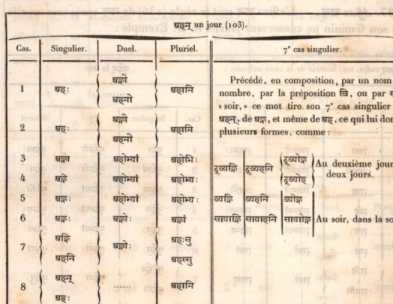 अहन् un jour (103).
Cas. Singulier. Duel. Pluriel. 7ᵉ cas singulier.
1 अहः अह्नी अहनी अहानि
2 अहः अह्नी अहनी अहानि
3 अह्ना अहोभ्यां अहोभिः
4 अह्ने अहोभ्यां अहोभ्यः
5 अह्नः अहोभ्यां अहोभ्यः
6 अह्नः अह्नोः अह्नां
7 अह्नि अहनि अह्नोः अहःसु अहस्सु
8 अहन् अहः ...... अहानि
Précédé, en composition, par un nom
nombre, par la préposition वि, ou par
soir, ce mot tire son 7ᵉ cas singulier
अहन्, de अह्न, et même de अह, ce qui lui
plusieurs formes, comme :
द्व्यह्नि द्व्यहनि द्व्यह्ने द्व्यहे Au deuxième jour
deux jours.
व्यह्नि व्यहनि व्यह्ने
सायाह्नि सायाहनि सायाह्ने Au soir, dans la